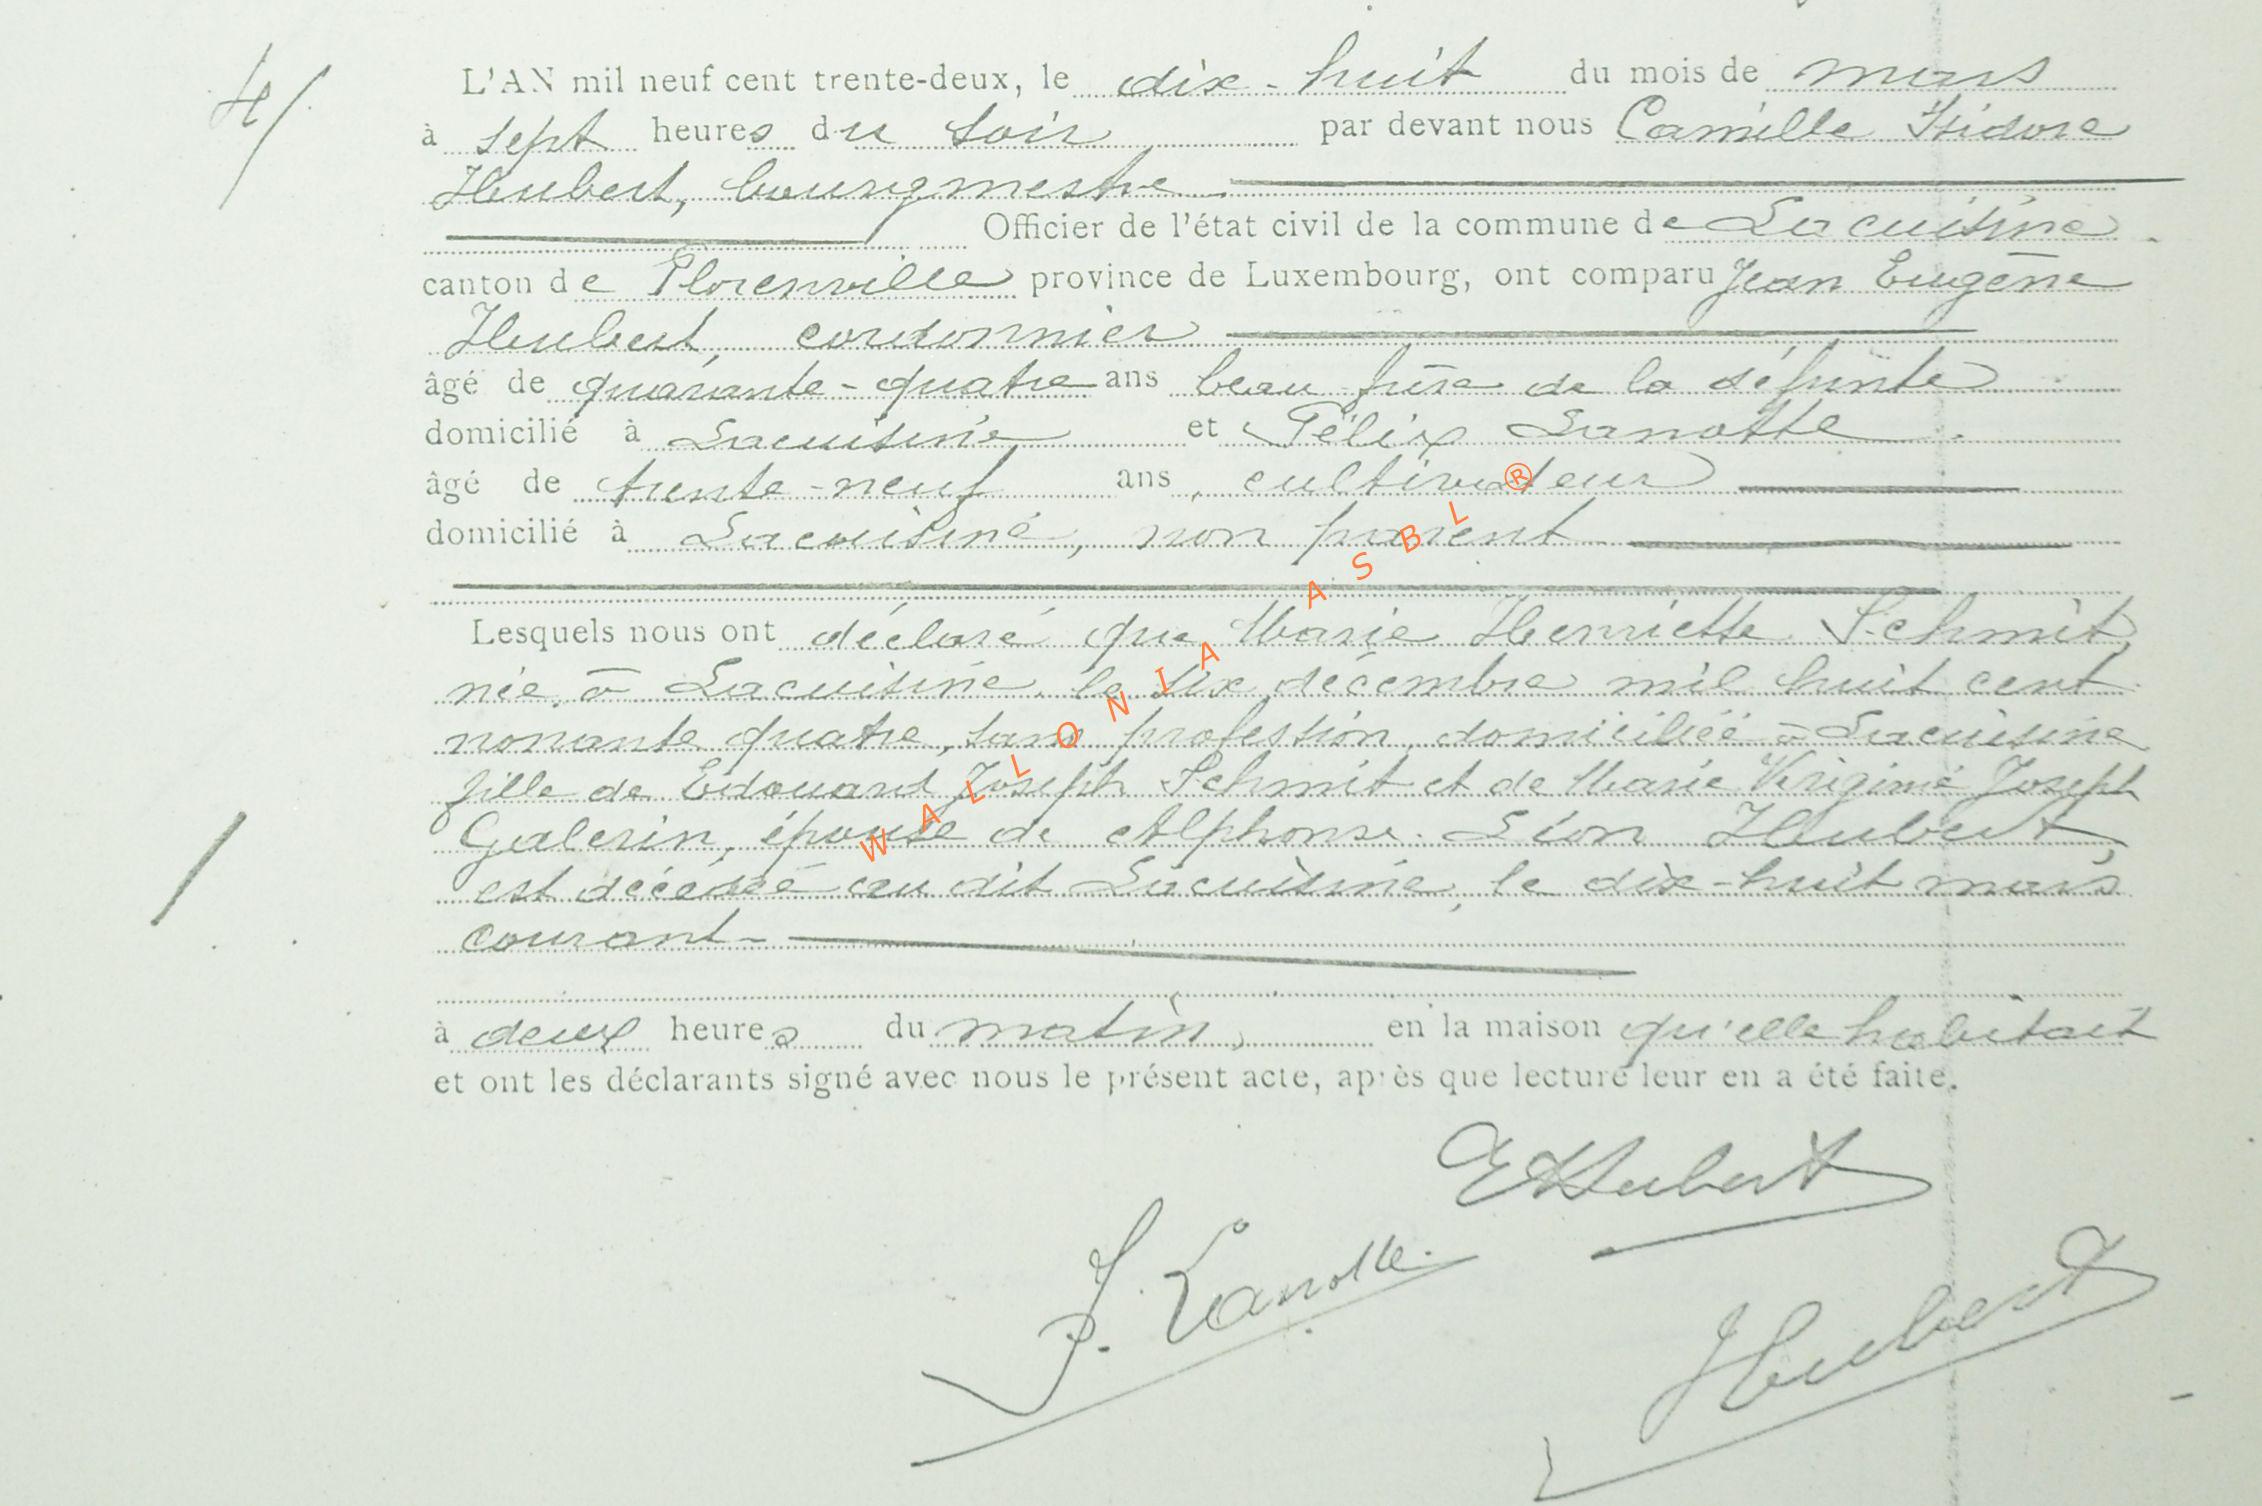 4/
L'AN mil neuf cent trente-deux, le dix-huit du mois de mars
à sept heures du soir par devant nous Camille Isidore
Hubert, bourgmestre
Officier de l'état civil de la commune de Lacuisine
canton de Florenville province de Luxembourg, ont comparu Jean Eugène
Hubert, cordonnier
âgé de quarante-quatre ans beau-frère de la défunte
domicilié à Lacuisine et Félix Lanotte
âgé de trente-neuf ans, cultivateur
domicilié à Lacuisine, non parent
Lesquels nous ont déclaré que Marie Henriette Schmit
née à Lacuisine le six décembre mil huit cent
nonante quatre, sans profession, domiciliée à Lacuisine
fille de Edouard Joseph Schmit et de Marie Virginie Joseph
Galerin, épouse de Alphonse Léon Hubert
est décédée au dit Lacuisine, le dix-huit mars
courant
à deux heures du matin, en la maison qu'elle habitait
et ont les déclarants signé avec nous le présent acte, après que lecture leur en a été faite.
EHubert
F. Lanotte
Hubert
WALLONIA ASBL ®